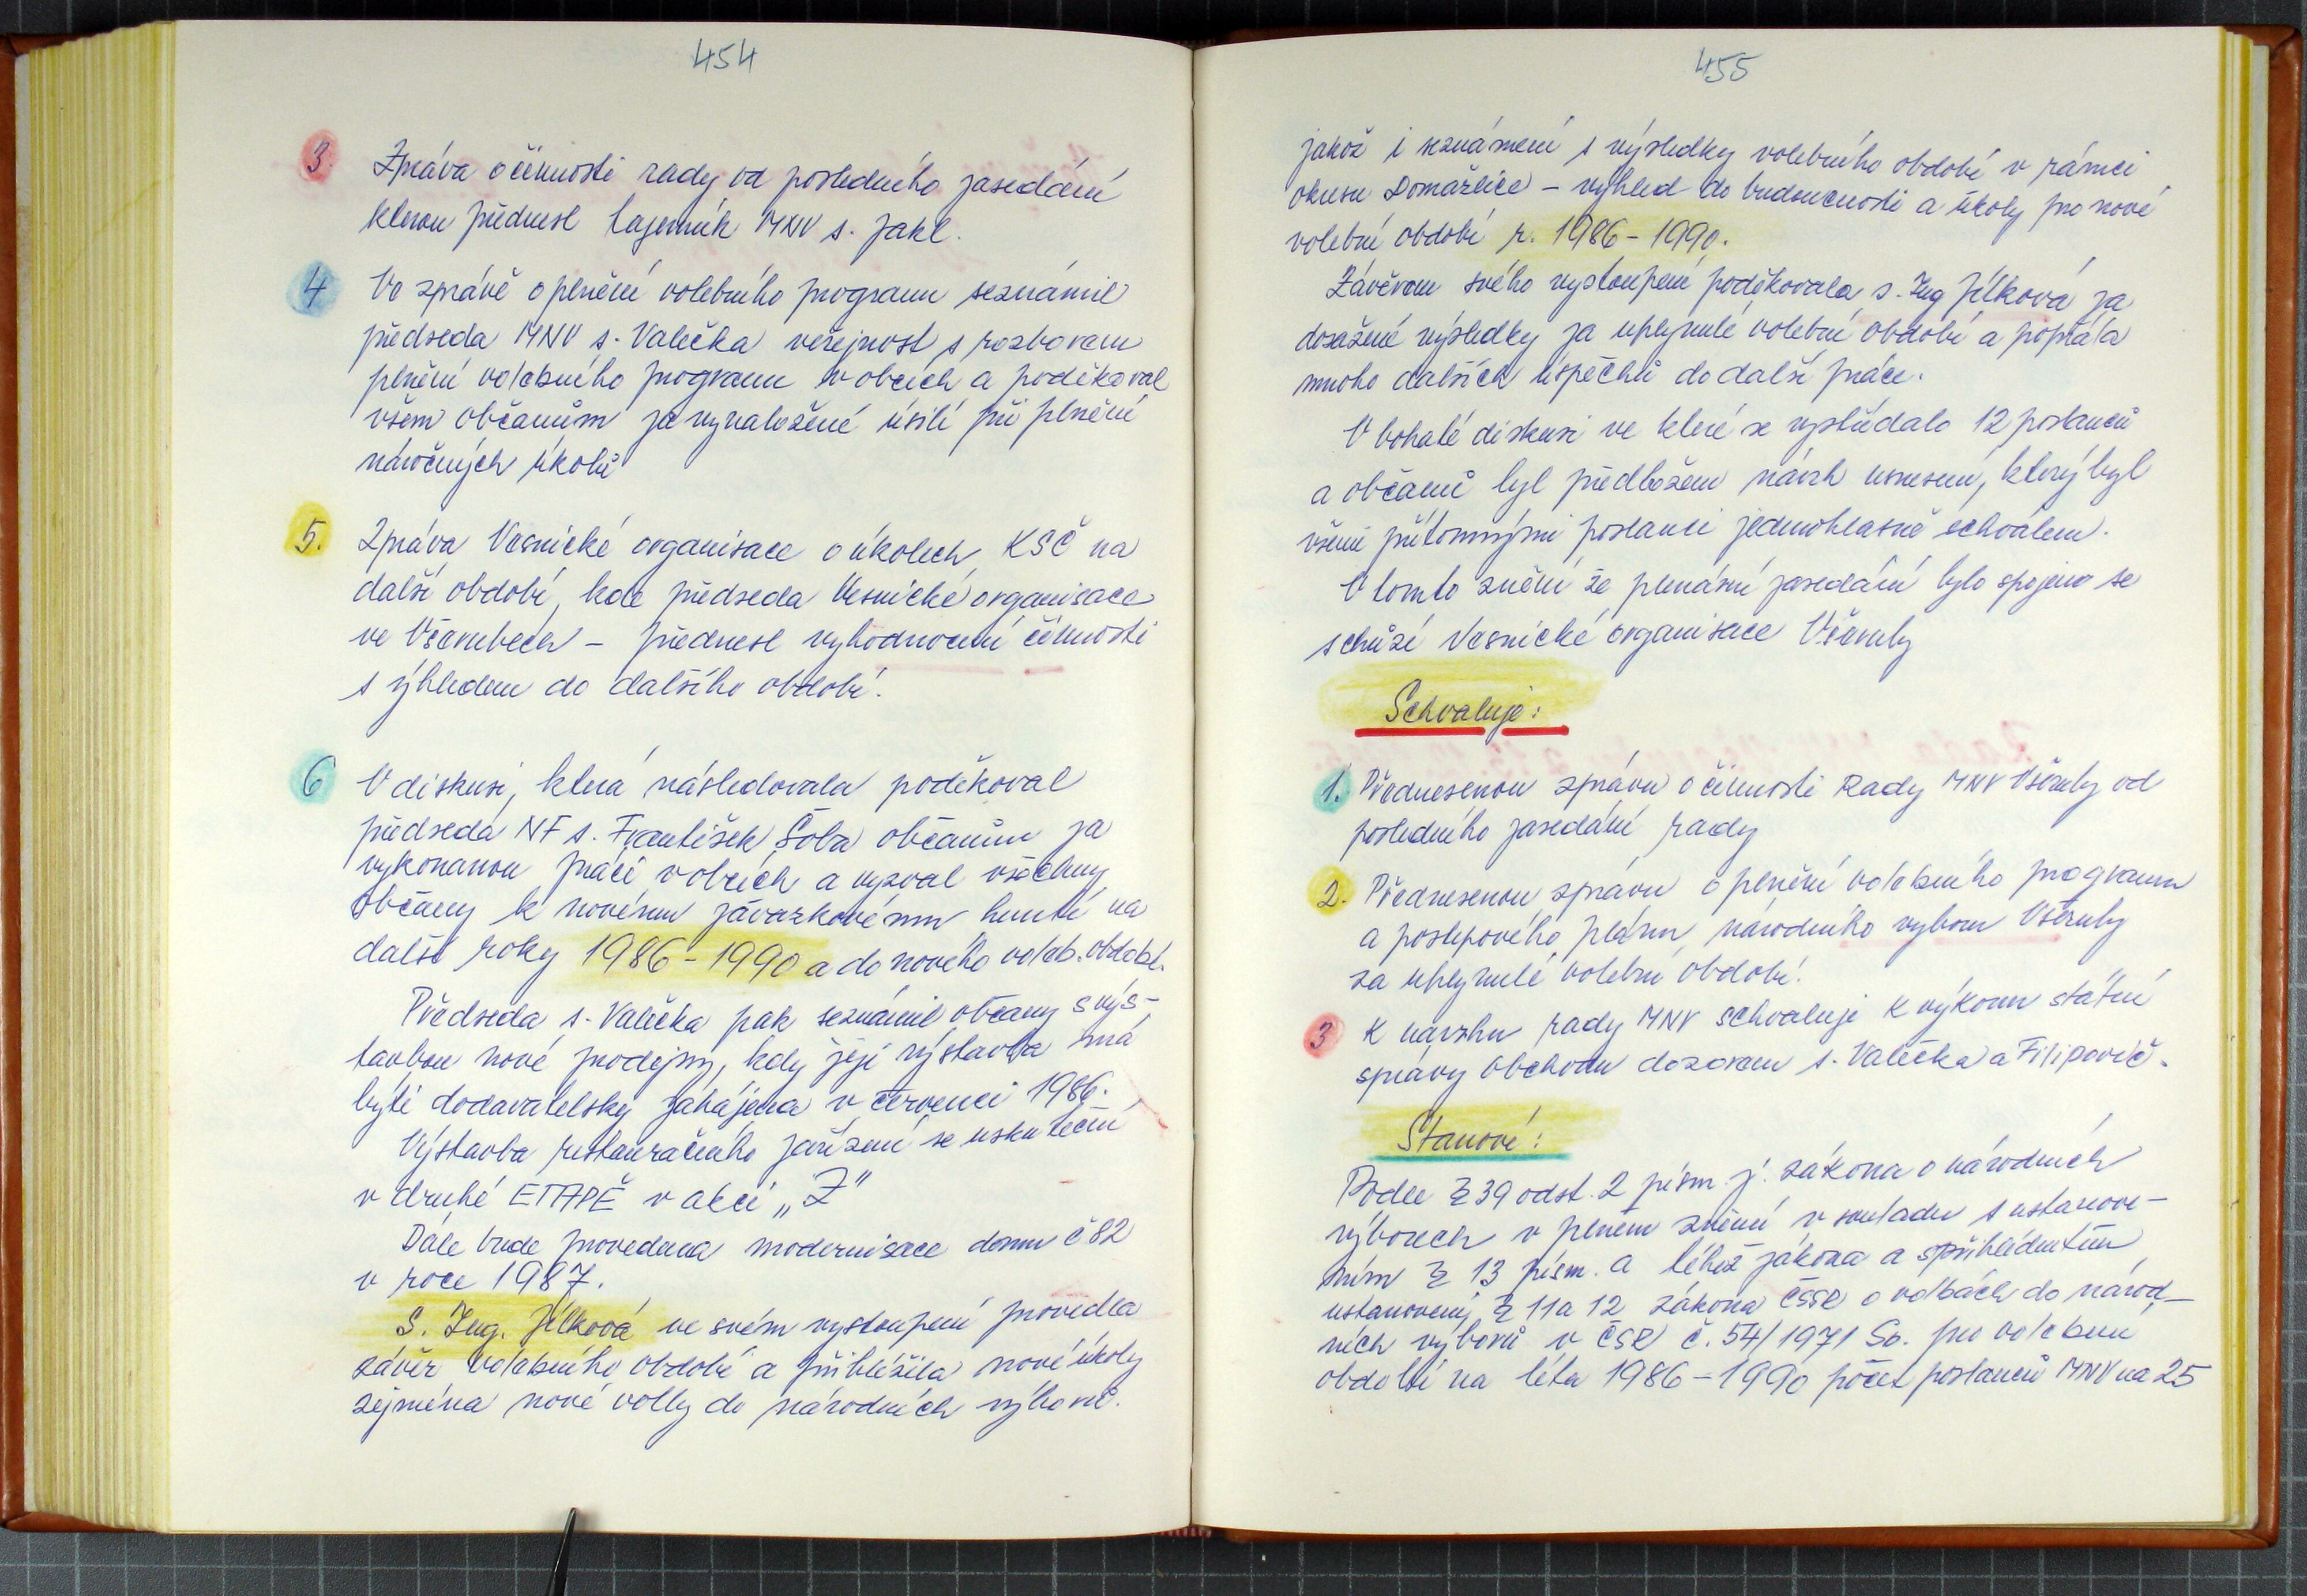 454
3. Zpráva o činnosti rady od posledního zasedání
kterou přednesl tajemník MNV s. Jakl.
4 Ve zprávě o plnění volebního programu seznámil
předseda MNV s. Valečka veřejnost s rozborem
plnění volebního programu v obcích a poděkoval
všem občanům za vynaložené úsilí při plnění
náročných úkolů
5. Zpráva Vesnické organisace o úkolech KSČ na
další období, kde předseda Vesnické organisace
ve Všerubech – přednesl vyhodnocení činnosti
s výhledem do dalšího období.
6 V diskusi, která následovala poděkoval
předseda NF s. František Šoba občanům za
vykonanou práci v obcích a vyzval všechny
občany k novému závazkovému hnutí na
další roky 1986 – 1990 a do nového voleb. období.
Předseda s. Valečka pak seznámil občany s výs-
tavbou nové prodejny, kdy její výstavba má
býti dodavatelsky zahájena v červenci 1986.
Výstavba restauračního zařízení se uskuteční
v druhé ETAPĚ v akci „Z"
Dále bude provedena modernisace domu č 82
v roce 1987.
S. Ing. Jílková ve svém vystoupení provedla
závěr volebního období a přiblížila nové úkoly
zejména nové volby do národních výborů.
455
jakož i seznámení s výsledky volebního období v rámci
okresu Domažlice – výhled do budoucnosti a úkoly pro nové
volební období r. 1986 – 1990.
Závěrem svého vystoupení poděkovala s. Ing Jílková za
dosažené výsledky za uplynulé volební období a popřála
mnoho dalších úspěchů do další práce.
V bohaté diskusi ve které se vystřídalo 12 poslanců
a občanů byl předložen návrh usnesení, který byl
všemi přítomnými poslanci jednohlasně schválen.
V tomto znění že plenární zasedání bylo spojeno se
schůzí Vesnické organisace Všeruby
Schvaluje:
1. Přednesenou zprávu o činnosti Rady MNV Všeruby od
posledního zasedání rady
2. Přednesenou zprávu o plnění volebního programu
a postupového plánu národního výboru Všeruby
za uplynulé volební období.
3 K návrhu rady MNV schvaluje k výkonu státní
správy obchodu dozorem s. Valečka a Filipovič.
Stanoví:
Podle § 39 odst. 2 písm. j. zákona o národních
výborech v plném znění v souladu s ustanove-
ním § 13 písm. a téhož zákona a s přihlédnutím
ustanovený § 11 a 12 zákona ČSSR o volbách do národ-
ních výborů v ČSR č. 54/1971 Sb. pro volební
období na léta 1986 – 1990 počet poslanců MNV na 25